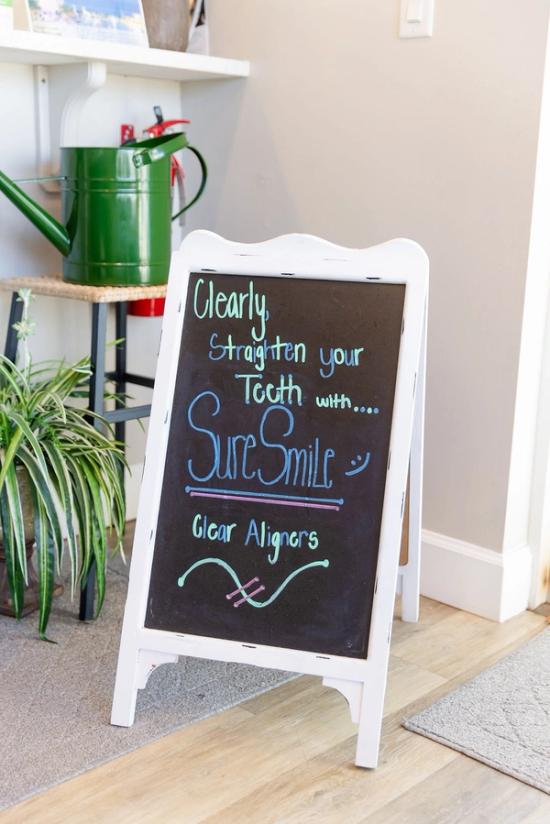 Clearly,
Straighten your
Teeth with....
SureSmile :)
Clear Aligners